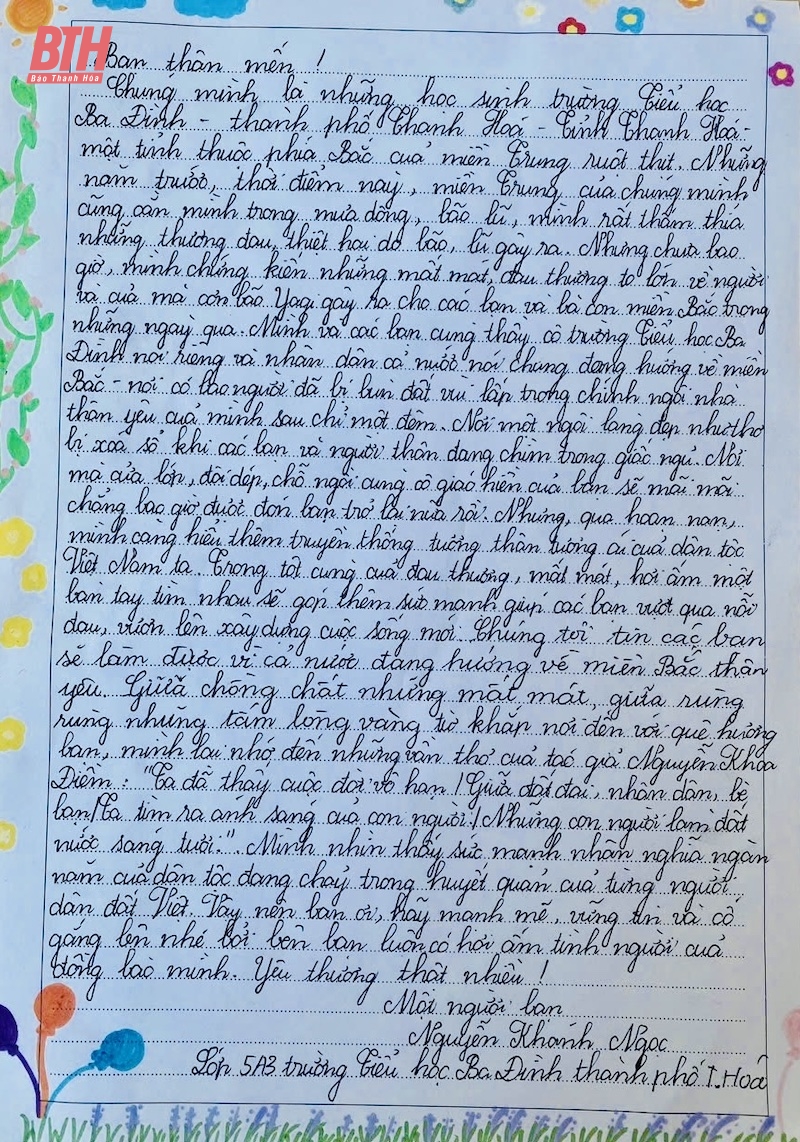 BTH
Báo Thanh Hóa
Bạn thân mến !
Chúng mình là những học sinh trường Tiểu học
Ba Đình - thành phố Thanh Hoá - Tỉnh Thanh Hoá -
một tỉnh thuộc phía Bắc của miền Trung ruột thịt. Những
năm trước, thời điểm này, miền Trung của chúng mình
cũng oằn mình trong mưa dông, bão lũ, mình rất thấm thía
những thương đau, thiệt hại do bão, lũ gây ra. Nhưng chưa bao
giờ, mình chứng kiến những mất mát, đau thương to lớn về người
và của mà cơn bão Yagi gây ra cho các bạn và bà con miền Bắc trong
những ngày qua. Mình và các bạn cùng thầy cô trường Tiểu học Ba
Đình nói riêng và nhân dân cả nước nói chung đang hướng về miền
Bắc - nơi có bao người đã bị bùn đất vùi lấp trong chính ngôi nhà
thân yêu của mình sau chỉ một đêm. Nơi một ngôi làng đẹp như thơ
bị xoá sổ khi các bạn và người thân đang chìm trong giấc ngủ. Nơi
mà cửa lớp, đôi dép, chỗ ngồi cùng cô giáo hiền của bạn sẽ mãi mãi
chẳng bao giờ được đón bạn trở lại nữa rồi. Nhưng, qua hoạn nạn,
mình càng hiểu thêm truyền thống tương thân tương ái của dân tộc
Việt Nam ta. Trong tột cùng của đau thương, mất mát, hơi ấm một
bàn tay tìm nhau sẽ góp thêm sức mạnh giúp các bạn vượt qua nỗi
đau, vươn lên xây dựng cuộc sống mới. Chúng tôi tin các bạn
sẽ làm được vì cả nước đang hướng về miền Bắc thân
yêu. Giữa chồng chất những mất mát, giữa rưng
rưng những tấm lòng vàng từ khắp nơi đến với quê hương
bạn, mình lại nhớ đến những vần thơ của tác giả Nguyễn Khoa
Điềm : "Ta đã thấy cuộc đời vô hạn / Giữa đất đai, nhân dân, bè
bạn / Ta tìm ra ánh sáng của con người / Những con người làm đất
nước sáng tươi.". Mình nhìn thấy sức mạnh nhân nghĩa ngàn
năm của dân tộc đang chảy trong huyết quản của từng người
dân đất Việt. Vậy nên bạn ơi, hãy mạnh mẽ, vững tin và cố
gắng lên nhé bởi bên bạn luôn có hơi ấm tình người của
đồng bào mình. Yêu thương thật nhiều !
Một người bạn
Nguyễn Khánh Ngọc
Lớp 5A3 trường Tiểu học Ba Đình thành phố T. Hoá